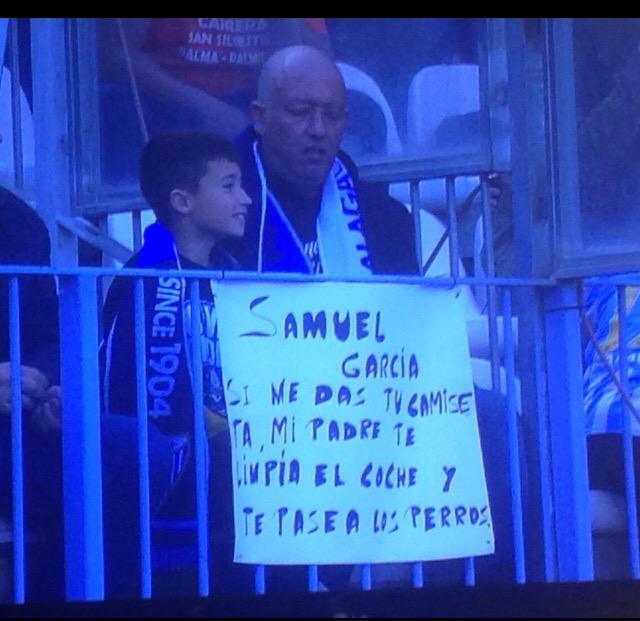 CARRERA
SAN SILVESTRE
PALMA - PALMILLA
MALAGA
SINCE 1904
SAMUEL
GARCÍA
SI ME DAS TU CAMISE
TA, MI PADRE TE
LIMPIA EL COCHE Y
TE PASEA LOS PERROS.